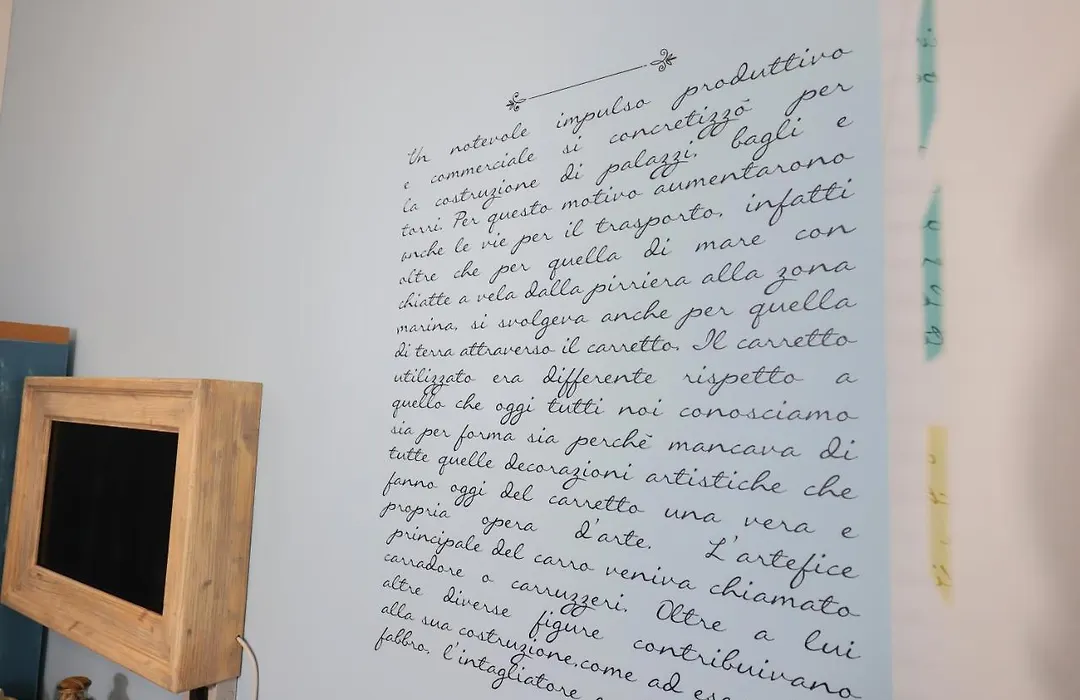 Un notevole impulso produttivo
e commerciale si concretizzò per
la costruzione di palazzi, bagli e
torri. Per questo motivo aumentarono
anche le vie per il trasporto, infatti
oltre che per quella di mare con
chiatte a vela dalla pirriera alla zona
marina, si svolgeva anche per quella
di terra attraverso il carretto. Il carretto
utilizzato era differente rispetto a
quello che oggi tutti noi conosciamo
sia per forma sia perchè mancava di
tutte quelle decorazioni artistiche che
fanno oggi del carretto una vera e
propria opera d'arte. L'artefice
principale del carro veniva chiamato
carradore o carruzzeri. Oltre a lui
altre diverse figure contribuivano
alla sua costruzione, come ad
fabbro, l'intagliatore